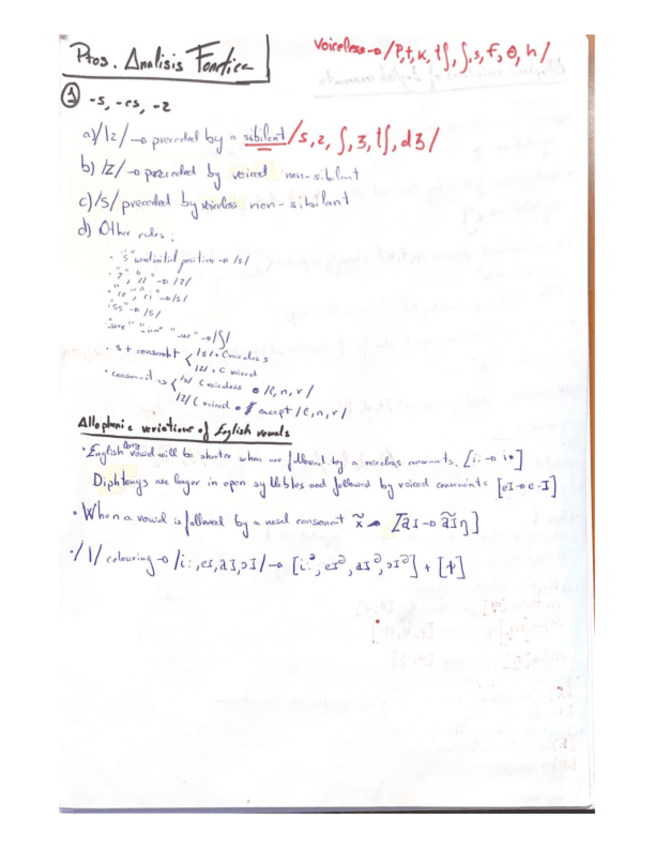 Pros. Analisis Fonetica
voiceless → /p, t, k, tʃ, ʃ, s, f, θ, h/
① -s, -es, -z
a) /Iz/ → preceded by a sibilant /s, z, ʃ, ʒ, tʃ, dʒ/
b) /z/ → preceded by voiced non-sibilant
c) /s/ preceded by voiceless non-sibilant
d) Other rules:
· "s" word initial position → /s/
→ /z/
"ce", "ci" → /s/
"ss" → /s/
→ /ʃ/
· s + consonant < /s/ + C voiceless
/z/ + C voiced
· consonant + s < /s/ C voiceless /l, n, r/
/z/ C voiced except /l, n, r/
Allophonic variations of English vowels
· English long vowel will be shorter when are followed by a voiceless consonants. [i: → i·]
Diphtongs are longer in open syllables and followed by voiced consonants [eI → e·I]
· When a vowel is followed by a nasal consonant x̃ → [aI → ãĨŋ]
· /l/ colouring → /i:, eI, aI, ɔI/ → [i:ᵊ, eIᵊ, aIᵊ, ɔIᵊ] + [ɫ]